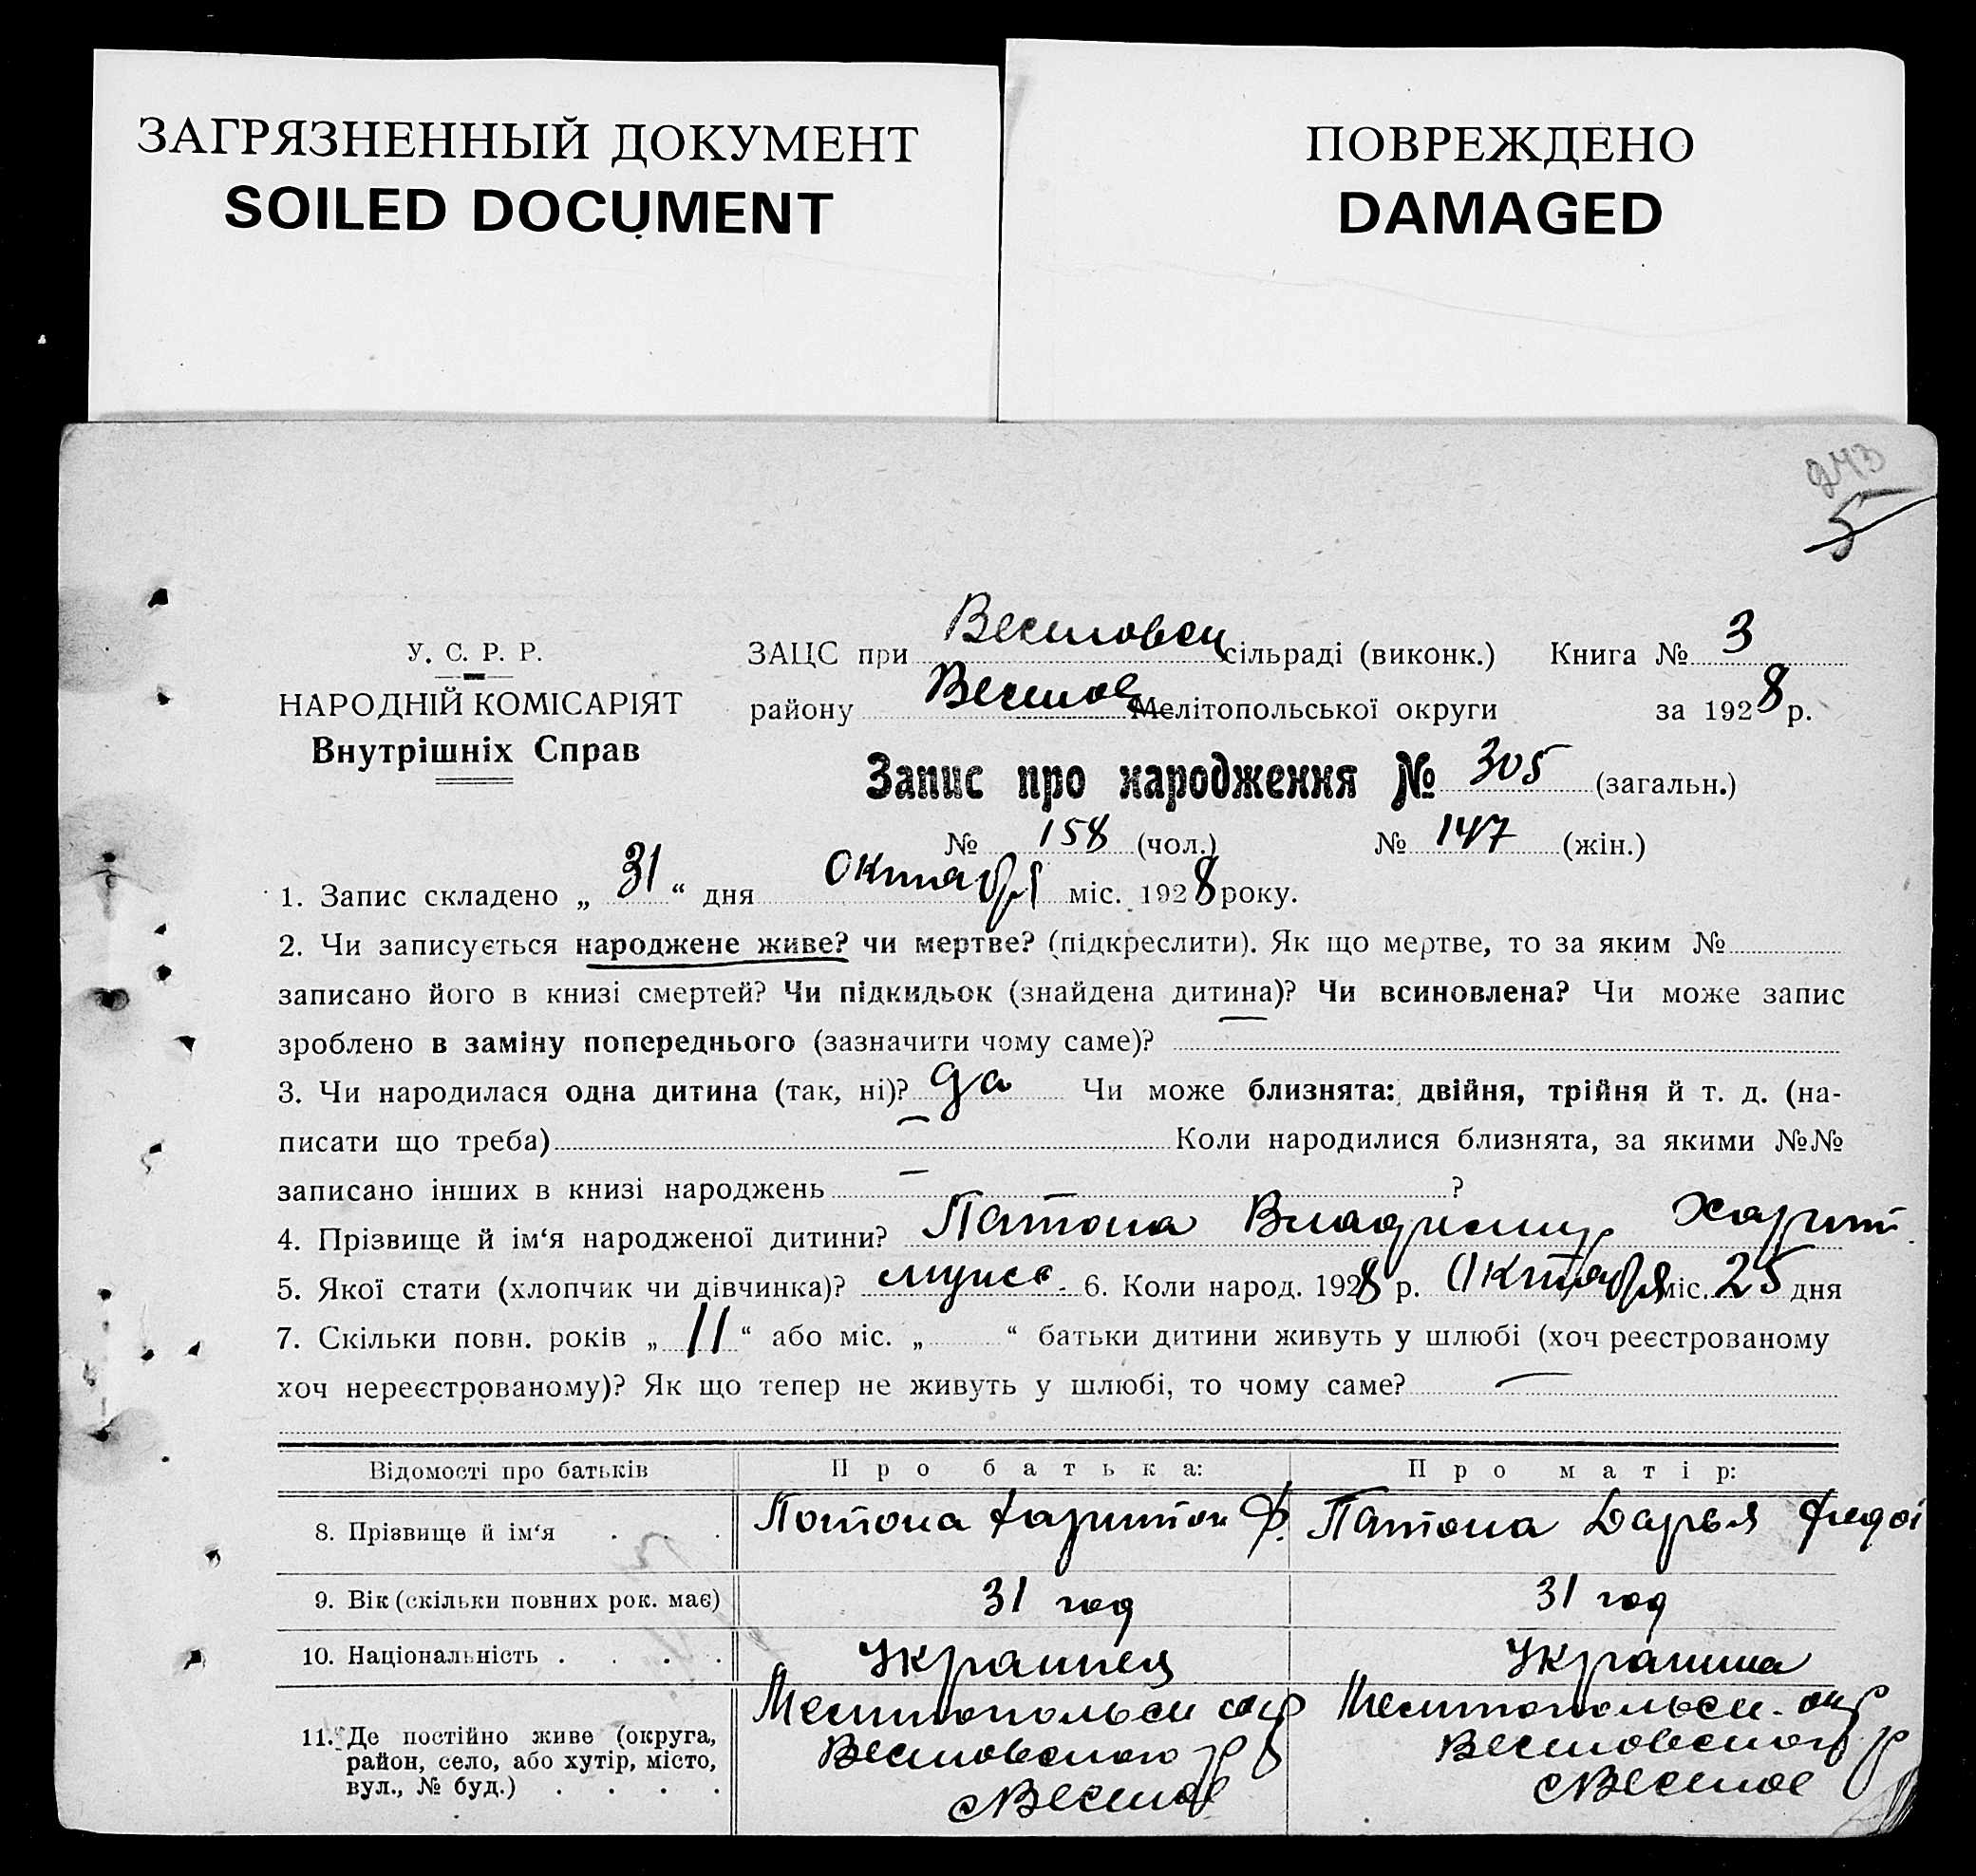 ЗАГРЯЗНЕННЫЙ ДОКУМЕНТ
SOILED DOCUMENT
ПОВРЕЖДЕНО
DAMAGED
243
5
У. С. Р. Р.
НАРОДНІЙ КОМІСАРІЯТ
Внутрішніх Справ
ЗАЦС при Веселовск сільраді (виконк.) Книга № 3
району Веселое Мелітопольської округи за 1928 р.
Запис про народження № 305 (загальн.)
№ 158 (чол.) № 147 (жін.)
1. Запис складено „ 31 “ дня Октября міс. 1928 року.
2. Чи записується народжене живе? чи мертве? (підкреслити). Як що мертве, то за яким №
записано його в книзі смертей? Чи підкидьок (знайдена дитина)? Чи всиновлена? Чи може запис
зроблено в заміну попереднього (зазначити чому саме)? —
3. Чи народилася одна дитина (так, ні)? да Чи може близнята: двійня, трійня й т. д. (на-
писати що треба) — Коли народилися близнята, за якими №№
записано інших в книзі народжень — ?
4. Прізвище й ім‘я народженої дитини? Патона Владимир Харит
5. Якої стати (хлопчик чи дівчинка)? мужск. 6. Коли народ. 1928 р. Октября міс. 25 дня
7. Скільки повн. років „ 11 “ або міс. „ “ батьки дитини живуть у шлюбі (хоч реєстрованому
хоч нереєстрованому)? Як що тепер не живуть у шлюбі, то чому саме? —
Відомості про батьків Про батька: Про матір:
8. Прізвище й ім‘я . . . Патона Харитон Ф. Патона Дарья Федос
9. Вік (скільки повних рок. має) 31 год 31 год
10. Національність . . . . Украинец Украинка
11. Де постійно живе (округа,
район, село, або хутір, місто,
вул., № буд.) . . . .
Мелитопольск окр
Веселовского р
с Веселое
Мелитопольск. окр
Веселовского р
с Веселое